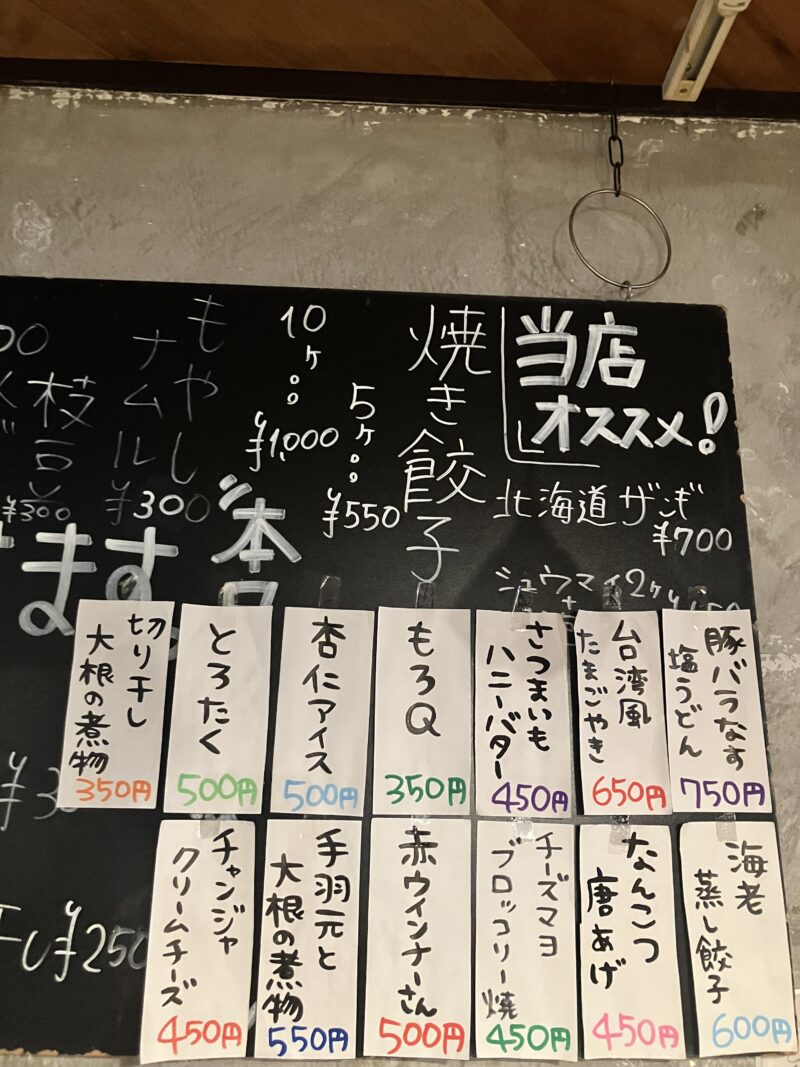 当店
オススメ!
北海道ザンギ
¥700
シュウマイ2ケ
焼き餃子
5ケ。。
¥550
10ケ。。
¥1,000
もやし
ナムル
¥300
枝豆
¥300
ます。
豚バラなす
塩うどん
750円
台湾風
たまごやき
650円
さつまいも
ハニーバター
450円
もろQ
350円
杏仁アイス
500円
とろたく
500円
切り干し
大根の煮物
350円
海老
蒸し餃子
600円
なんこつ
唐あげ
450円
チーズマヨ
ブロッコリー焼
450円
赤ウインナーさん
500円
手羽元と
大根の煮物
550円
チャンジャ
クリームチーズ
450円
¥250